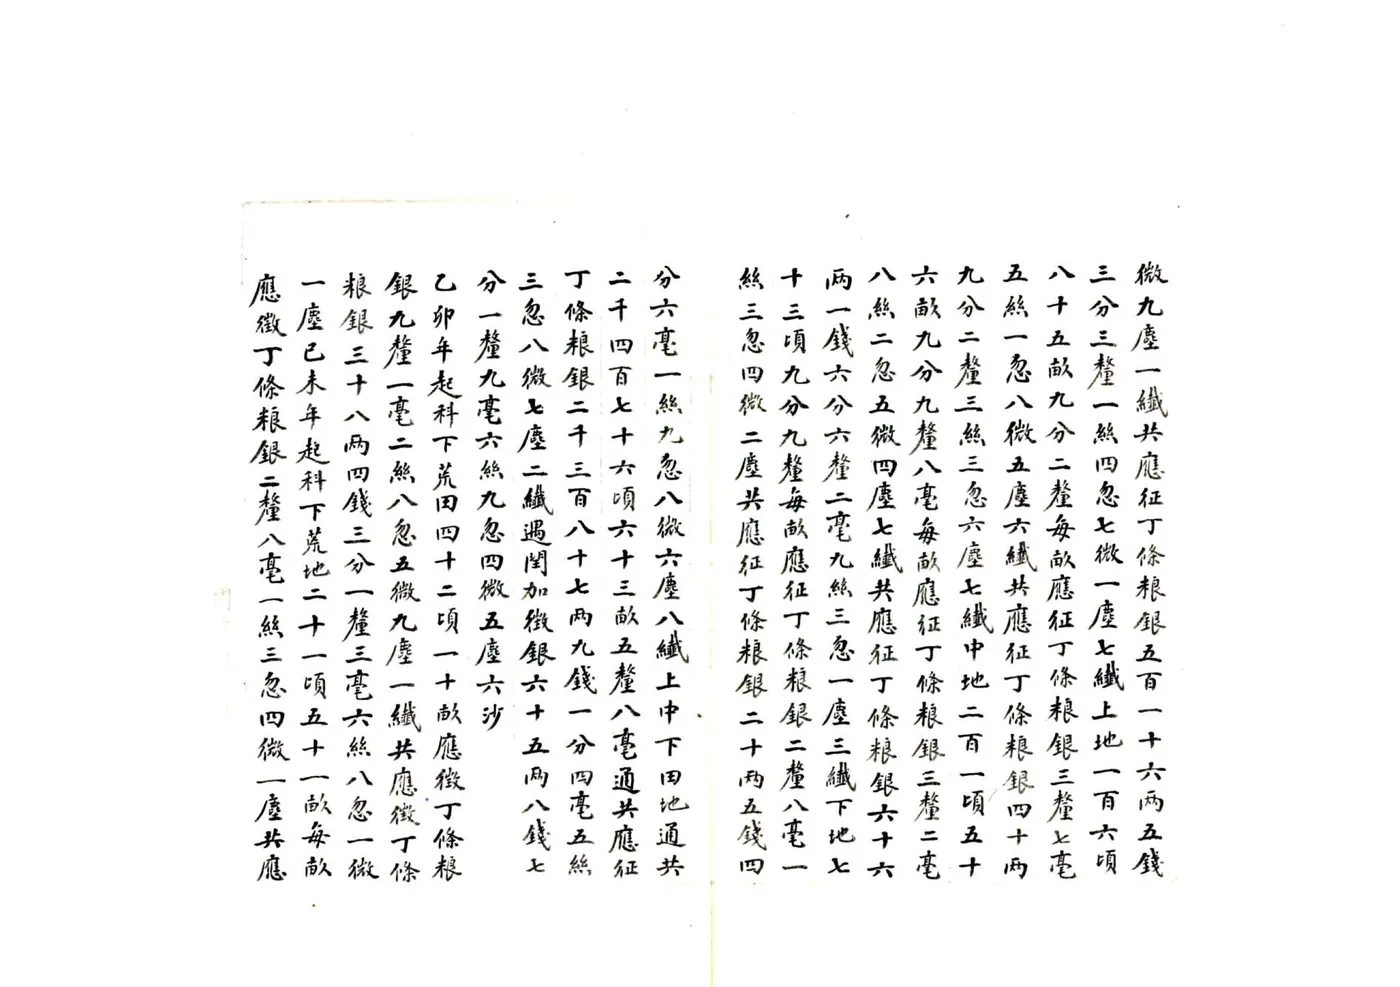 微九塵一纖共應征丁條粮銀五百一十六两五錢
三分三釐一絲四忽七微一塵七纖上地一百六頃
八十五畝九分二釐每畝應征丁條粮銀三釐七毫
五絲一忽八微五塵六纖共應征丁條粮銀四十两
九分二釐三絲三忽六塵七纖中地二百一頃五十
六畝九分九釐八毫每畝應征丁條粮銀三釐二毫
八絲二忽五微四塵七纖共應征丁條粮銀六十六
两一錢六分六釐二毫九絲三忽一塵三纖下地七
十三頃九分九釐每畝應征丁條粮銀二釐八毫一
絲三忽四微二塵共應征丁條粮銀二十两五錢四
分六毫一絲九忽八微六塵八纖上中下田地通共
二千四百七十六頃六十三畝五釐八毫通共應征
丁條粮銀二千三百八十七两九錢一分四毫五絲
三忽八微七塵二纖遇閏加徵銀六十五两八錢七
分一釐九毫六絲九忽四微五塵六沙
乙卯年起科下荒田四十二頃一十畝應徵丁條粮
銀九釐一毫二絲八忽五微九塵一纖共應徵丁條
粮銀三十八两四錢三分一釐三毫六絲八忽一微
一塵己未年起科下荒地二十一頃五十一畝每畝
應徵丁條粮銀二釐八毫一絲三忽四微一塵共應